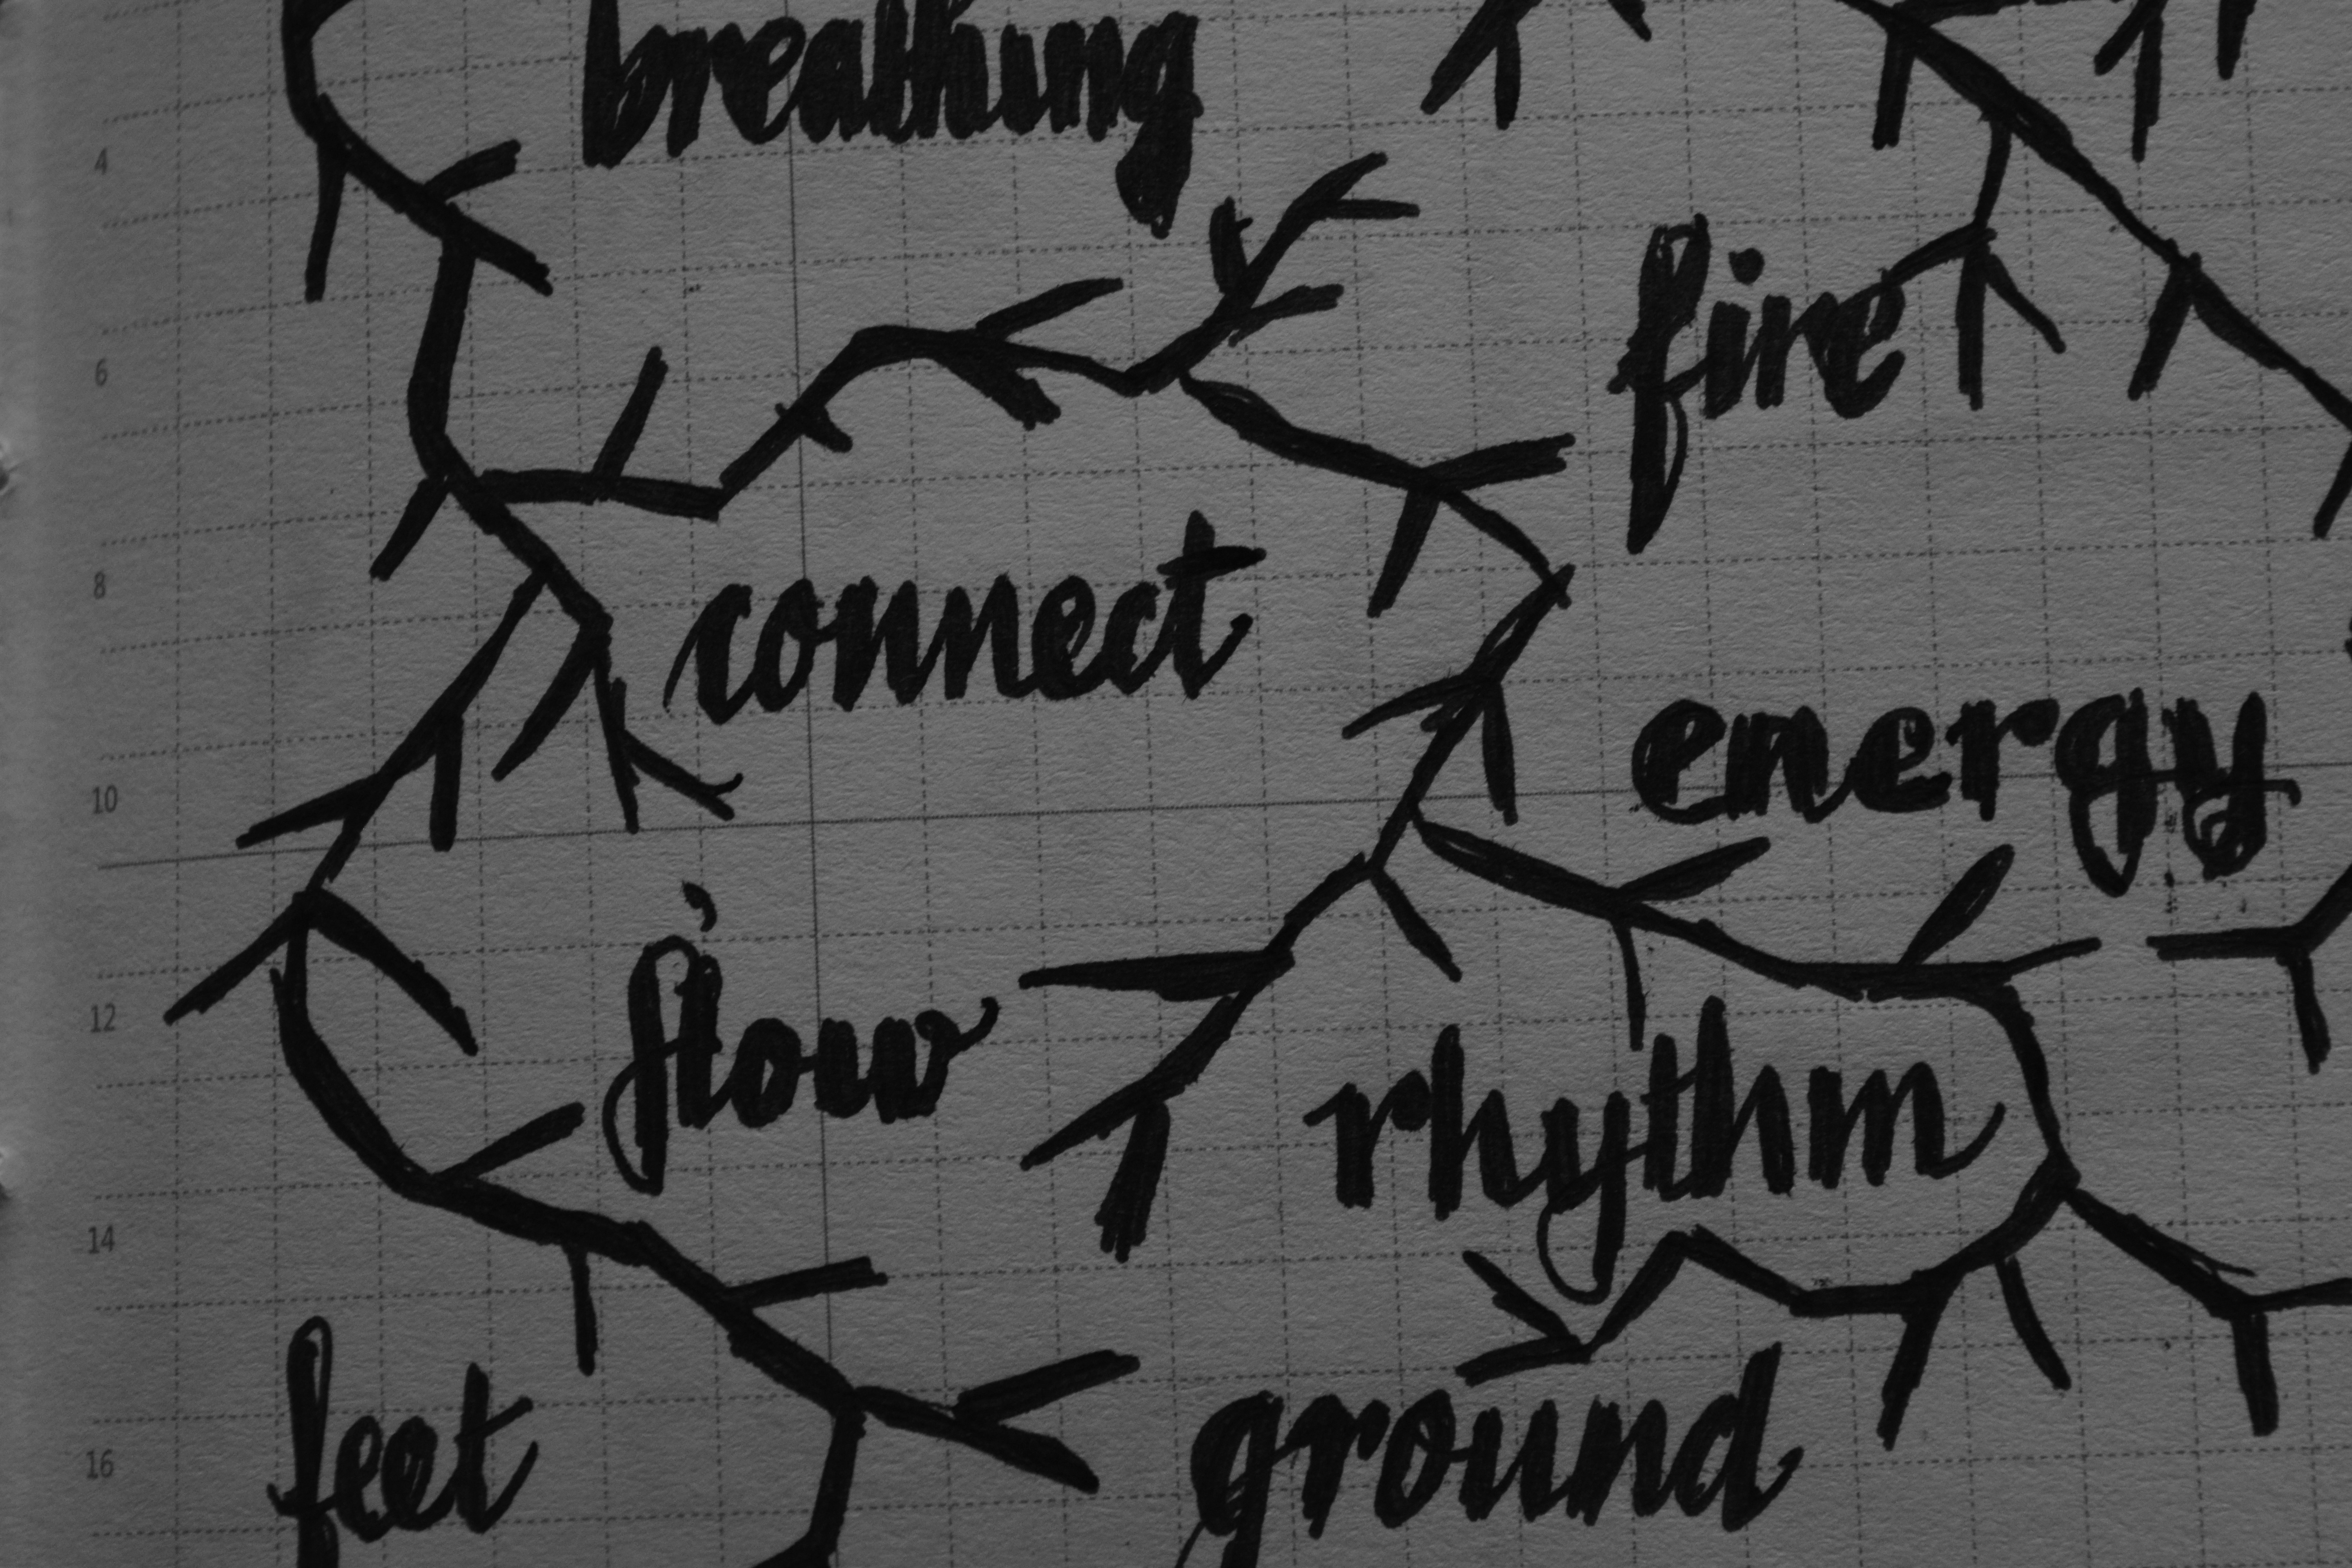 breathing
4
fire
6
connect
8
energy
10
flow
12
rhythm
14
feet
ground
16